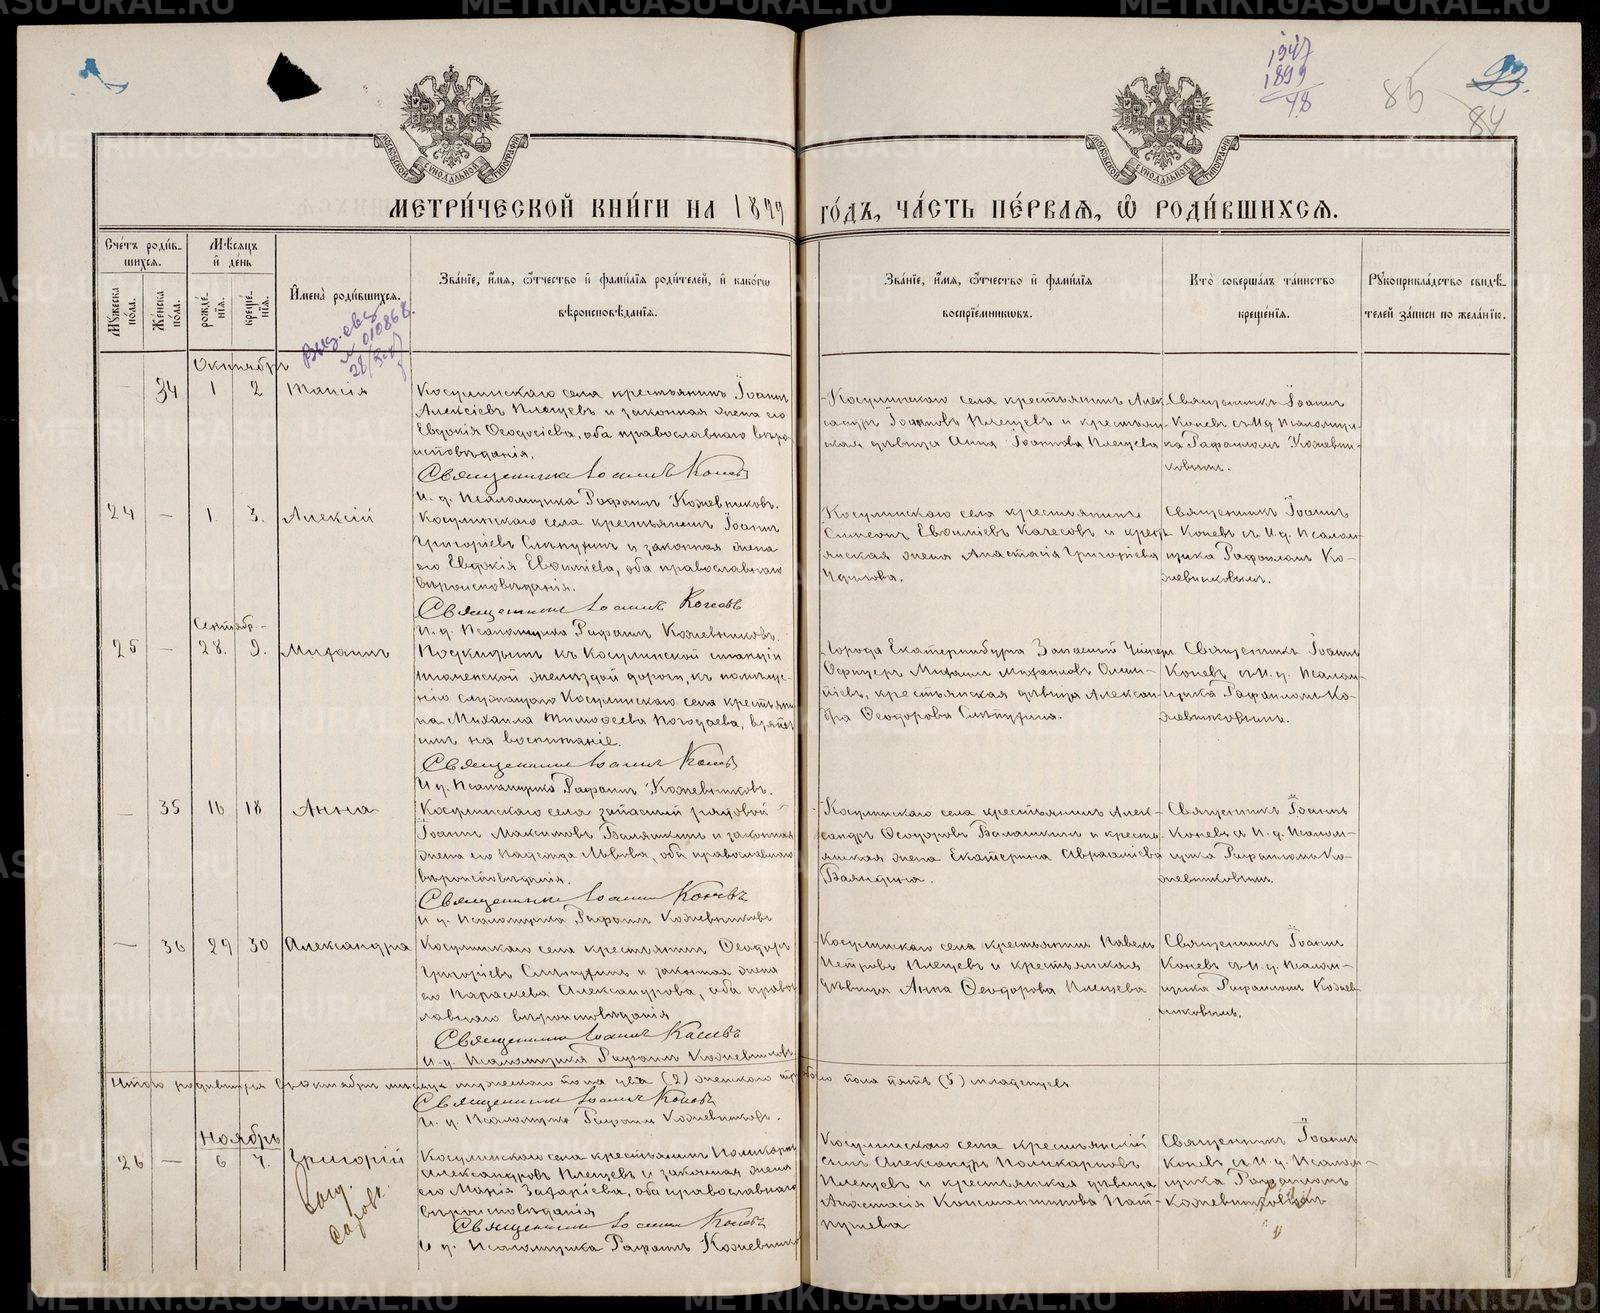 1947
1899
48
85
93.
84
МОСКОВСКОЙ СѴНОДАЛЬНОЙ ТИПОГРАФІИ
МОСКОВСКОЙ СѴНОДАЛЬНОЙ ТИПОГРАФІИ
МЕТРИ́ЧЕСКОЙ КНИ́ГИ НА 1899 ГО́ДЪ, ЧА́СТЬ ПЕ́РВАѦ, Ѽ РОДИ́ВШИХСѦ.
Счетъ роди́в-
шихсѧ.
Мꙋжеска по́ла.
Же́нска по́ла.
Мѣ́сѧцъ
и҆ де́нь
рожде́-
нїѧ.
креще́-
нїѧ.
И҆мена̀ роди́вшихсѧ.
Зва́нїе, и҆́мѧ, ѻ҆́тчество и҆ фами́лїѧ роди́телей, и҆ како́гѡ
вѣроисповѣ́данїѧ.
Зва́нїе, и҆́мѧ, ѻ҆́тчество и҆ фами́лїѧ
воспрїе́мникѡвъ.
Кто̀ соверша́лъ та́инство
креще́нїѧ.
Рꙋкоприкла́дство свидѣ́-
телей за́писи по жела́нїю.
№ 010868.
Октябрь
— 34 1 2 Таисія
Косулинскаго села крестьянинъ Іоаннъ
Алексіевъ Плещевъ и законная жена его
Евдокія Ѳеодосіева, оба православнаго вѣро-
исповѣданія.
Священникъ Іоаннъ Коневъ
И. д. Псаломщика Рафаилъ Кожевниковъ.
Косулинскаго села крестьянинъ Алек-
сандръ Іоанновъ Плещевъ и крестьян-
ская дѣвица Анна Іоаннова Плещева
Священникъ Іоаннъ
Коневъ съ И. д. Псаломщи-
ка Рафаиломъ Кожевни-
ковымъ.
24 — 1. 3. Алексій
Косулинскаго села крестьянинъ Іоаннъ
Григоріевъ Слѣпухинъ и законная жена
его Евдокія Евфиміева, оба православнаго
вѣроисповѣданія.
Священникъ Іоаннъ Коневъ
И. д. Псаломщика Рафаилъ Кожевниковъ.
Косулинскаго села крестьянинъ
Симеонъ Евфиміевъ Качесовъ и крест-
янская жена Анастасія Григоріева
Священникъ Іоаннъ
Коневъ съ И. д. Псалом-
щика Рафаиломъ Ко-
жевниковымъ.
Сентябр.
25 — 28. 9. Михаилъ
Подкинутъ къ Косулинской станціи
тюменской желѣзной дороги, къ помѣще-
нію служащаго Косулинскаго села крестьяни-
на Михаила Тимоѳеева Погодаева, взятъ
имъ на воспитаніе.
Священникъ Іоаннъ Коневъ
И д. Псаломщика Рафаилъ Кожевниковъ.
Города Екатеринбурга Запасный Унтеръ
Офицеръ Михаилъ Михаиловъ
крестьянская дѣвица Алексан-
дра Ѳеодорова Слѣпухина.
Священникъ Іоаннъ
Коневъ съ И. д. Псалом-
щика Рафаиломъ Ко-
жевниковымъ.
— 35 16 18 Анна
Косулинскаго села запасный рядовой
Іоаннъ Максимовъ Балашкинъ и законная
жена его Надежда Львова, оба православнаго
вѣроисповѣданія.
Священникъ Іоаннъ Коневъ
И д. Псаломщика Рафаилъ Кожевниковъ
Косулинскаго села крестьянинъ Алек-
сандръ Ѳеодоровъ Балашкинъ и кресть-
янская жена Екатерина Авраміева
Священникъ Іоаннъ
Коневъ съ И. д. Псалом-
щика Рафаиломъ Ко-
жевниковымъ.
— 36 29 30 Александра
Косулинскаго села крестьянинъ Ѳеодоръ
Григоріевъ Слѣпухинъ и законная жена
его Параскева Александрова, оба право-
славнаго вѣроисповѣданія
Священникъ Іоаннъ Коневъ
И. д. Псаломщика Рафаилъ Кожевниковъ
Косулинскаго села крестьянинъ Павелъ
Петровъ Плещевъ и крестьянская
дѣвица Анна Ѳеодорова Плещева
Священникъ Іоаннъ
Коневъ съ И. д. Псалом-
щика Рафаиломъ Кожев-
никовымъ.
Итого родившихся въ октябрѣ мѣсяцѣ мужескаго пола два (2) женскаго три обоего пола пять (5) младенцевъ
Священникъ Іоаннъ Коневъ
И. д. Псаломщика Рафаилъ Кожевниковъ.
Ноябрь
26 — 6 7. Григорій
Косулинскаго села крестьянинъ Поликарпъ
Александровъ Плещевъ и законная жена
его Марія Захаріева, оба православнаго
вѣроисповѣданія
Священникъ Іоаннъ Коневъ
И д. Псаломщика Рафаилъ Кожевниковъ
Косулинскаго села крестьянскій
сынъ Александръ Поликарповъ
Плещевъ и крестьянская дѣвица
Анастасія Константинова
Священникъ Іоаннъ
Коневъ съ И. д. Псалом-
щика Рафаиломъ
Кожевниковымъ
METRIKI.GASO-URAL.RU